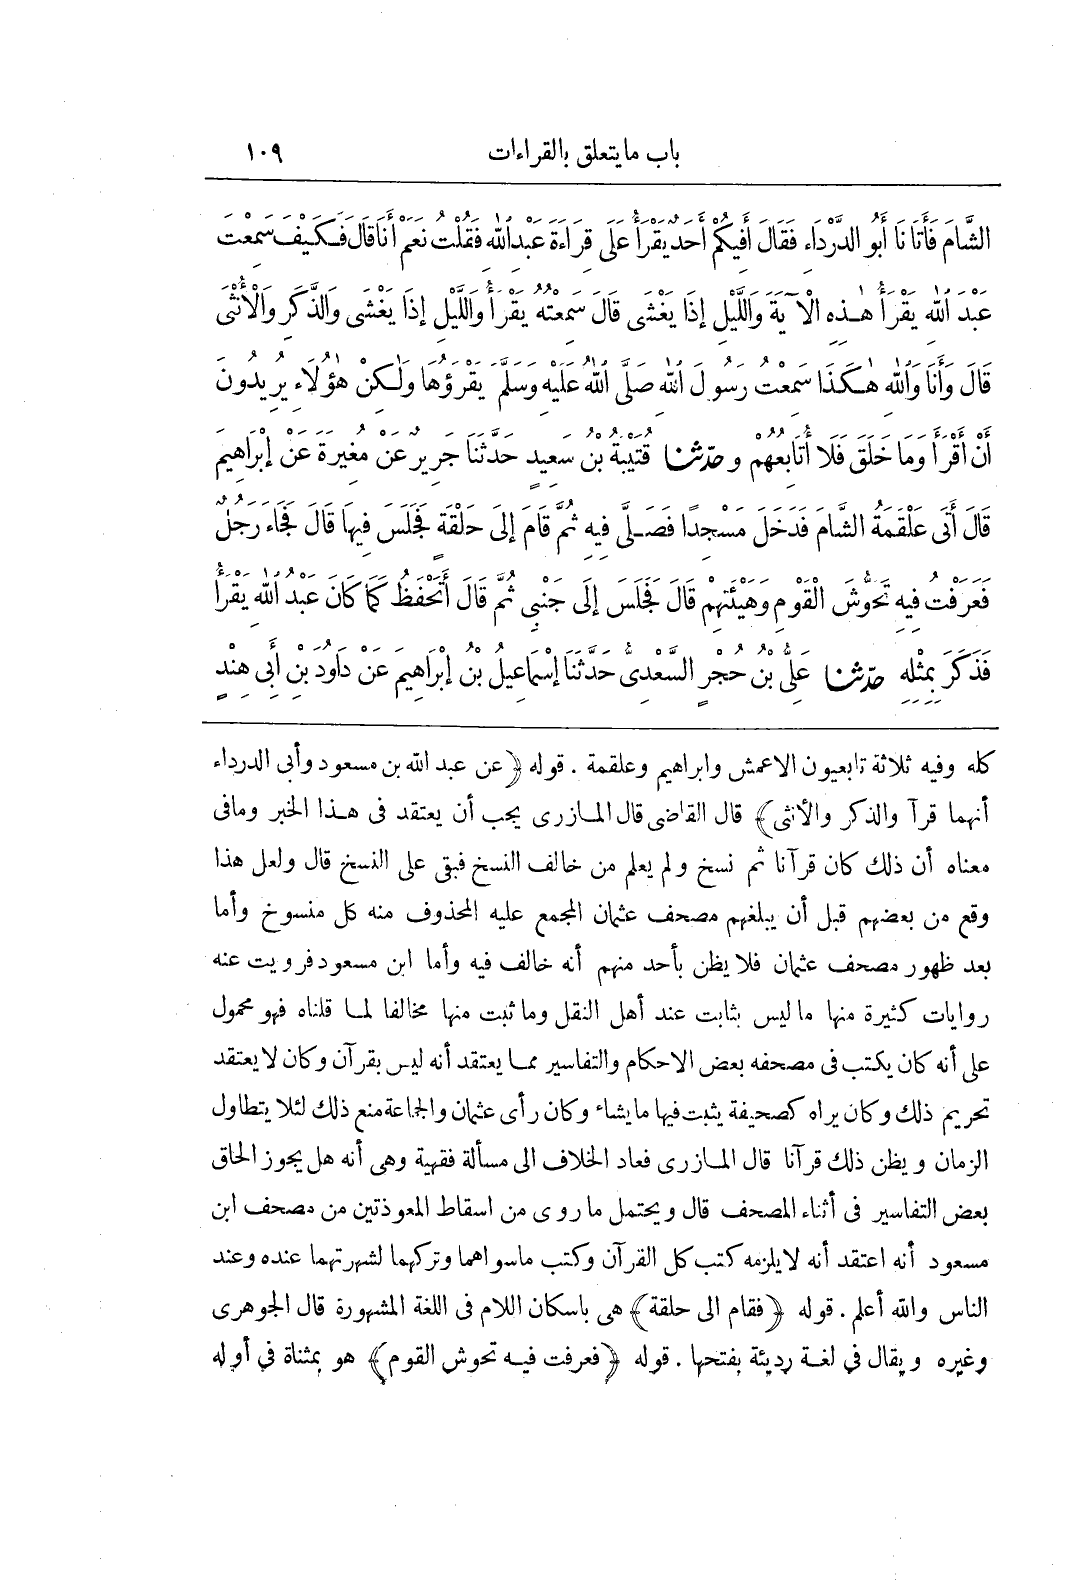 باب ما يتعلق بالقراءات ١٠٩
الشَّامَ فَأَتَانَا أَبُو الدَّرْدَاءِ فَقَالَ أَفِيكُمْ أَحَدٌ يَقْرَأُ عَلَى قِرَاءَةِ عَبْدِ اللهِ فَقُلْتُ نَعَمْ أَنَا قَالَ فَكَيْفَ سَمِعْتَ
عَبْدَ اللهِ يَقْرَأُ هٰذِهِ الْآيَةَ وَاللَّيْلِ إِذَا يَغْشَى قَالَ سَمِعْتُهُ يَقْرَأُ وَاللَّيْلِ إِذَا يَغْشَى وَالذَّكَرِ وَالْأُنْثَى
قَالَ وَأَنَا وَاللهِ هٰكَذَا سَمِعْتُ رَسُولَ اللهِ صَلَّى اللهُ عَلَيْهِ وَسَلَّمَ يَقْرَؤُهَا وَلٰكِنْ هٰؤُلَاءِ يُرِيدُونَ
أَنْ أَقْرَأَ وَمَا خَلَقَ فَلَا أُتَابِعُهُمْ وحدّثنا قُتَيْبَةُ بْنُ سَعِيدٍ حَدَّثَنَا جَرِيرٌ عَنْ مُغِيرَةَ عَنْ إِبْرَاهِيمَ
قَالَ أَتَى عَلْقَمَةُ الشَّامَ فَدَخَلَ مَسْجِدًا فَصَلَّى فِيهِ ثُمَّ قَامَ إِلَى حَلْقَةٍ فَجَلَسَ فِيهَا قَالَ فَجَاءَ رَجُلٌ
فَعَرَفْتُ فِيهِ تَحَوُّشَ الْقَوْمِ وَهَيْئَتَهُمْ قَالَ فَجَلَسَ إِلَى جَنْبِي ثُمَّ قَالَ أَتَحْفَظُ كَمَا كَانَ عَبْدُ اللهِ يَقْرَأُ
فَذَكَرَ بِمِثْلِهِ حدّثنا عَلِيُّ بْنُ حُجْرٍ السَّعْدِيُّ حَدَّثَنَا إِسْمَاعِيلُ بْنُ إِبْرَاهِيمَ عَنْ دَاوُدَ بْنِ أَبِي هِنْدٍ
كله وفيه ثلاثة تابعيون الاعمش وابراهيم وعلقمة . قوله ﴿عن عبد الله بن مسعود وأبى الدرداء
أنهما قرآ والذكر والأنثى﴾ قال القاضى قال المازرى يجب أن يعتقد فى هذا الخبر ومافى
معناه أن ذلك كان قرآنا ثم نسخ ولم يعلم من خالف النسخ فبقى على النسخ قال ولعل هذا
وقع من بعضهم قبل أن يبلغهم مصحف عثمان المجمع عليه المحذوف منه كل منسوخ وأما
بعد ظهور مصحف عثمان فلا يظن بأحد منهم أنه خالف فيه وأما ابن مسعود فرويت عنه
روايات كثيرة منها ماليس بثابت عند أهل النقل وما ثبت منها مخالفا لما قلناه فهو محمول
على أنه كان يكتب فى مصحفه بعض الاحكام والتفاسير مما يعتقد أنه ليس بقرآن وكان لا يعتقد
تحريم ذلك وكان يراه كصحيفة يثبت فيها مايشاء وكان رأى عثمان والجماعة منع ذلك لئلا يتطاول
الزمان ويظن ذلك قرآنا قال المازرى فعاد الخلاف الى مسألة فقهية وهى أنه هل يجوز الحاق
بعض التفاسير فى أثناء المصحف قال ويحتمل ماروى من اسقاط المعوذتين من مصحف ابن
مسعود أنه اعتقد أنه لا يلزمه كتب كل القرآن وكتب ماسواهما وتركهما لشهرتهما عنده وعند
الناس والله أعلم . قوله ﴿فقام الى حلقة﴾ هى باسكان اللام فى اللغة المشهورة قال الجوهرى
وغيره ويقال في لغة رديئة بفتحها . قوله ﴿فعرفت فيه تحوش القوم﴾ هو بمثناة في أوله